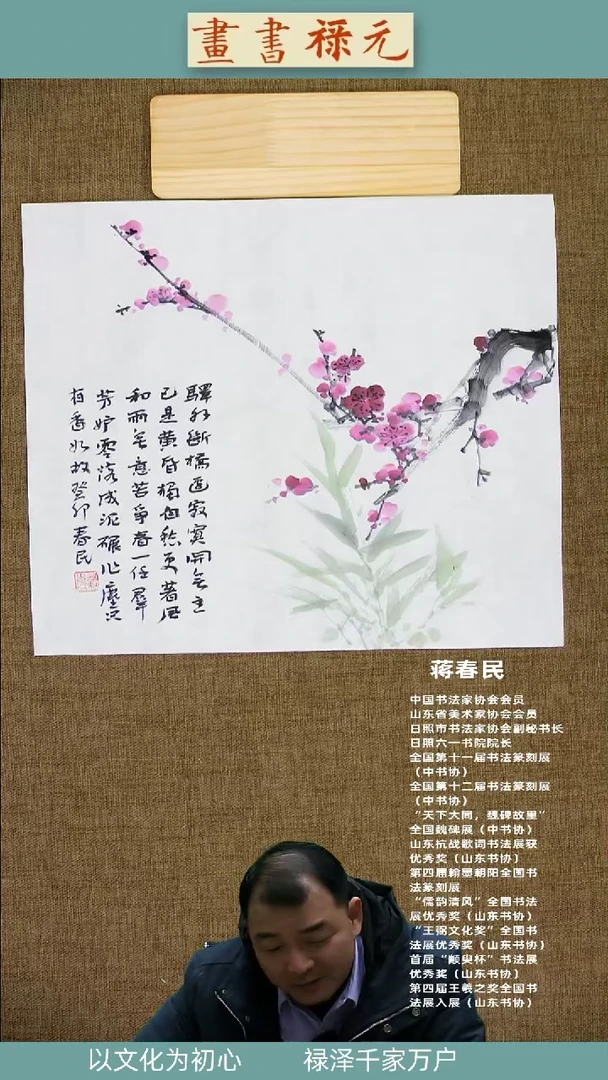 元禄書畫
驛外斷橋邊寂寞開无主
已是黄昏獨自愁更著風
和雨无意苦爭春一任羣
芳妒零落成泥碾作塵只
有香如故癸卯春民
蒋春民
中国书法家协会会员
山东省美术家协会会员
日照市书法家协会副秘书长
日照六一书院院长
全国第十一届书法篆刻展
（中书协）
全国第十二届书法篆刻展
（中书协）
“天下大同，魏碑故里”
全国魏碑展（中书协）
山东抗战歌词书法展获
优秀奖（山东书协）
第四届翰墨朝阳全国书
法篆刻展
“儒韵清风”全国书法
展优秀奖（山东书协）
“王弼文化奖”全国书
法展优秀奖（山东书协）
首届“颛臾杯”书法展
优秀奖（山东书协）
第四届王羲之奖全国书
法展入展（山东书协）
以文化为初心 禄泽千家万户